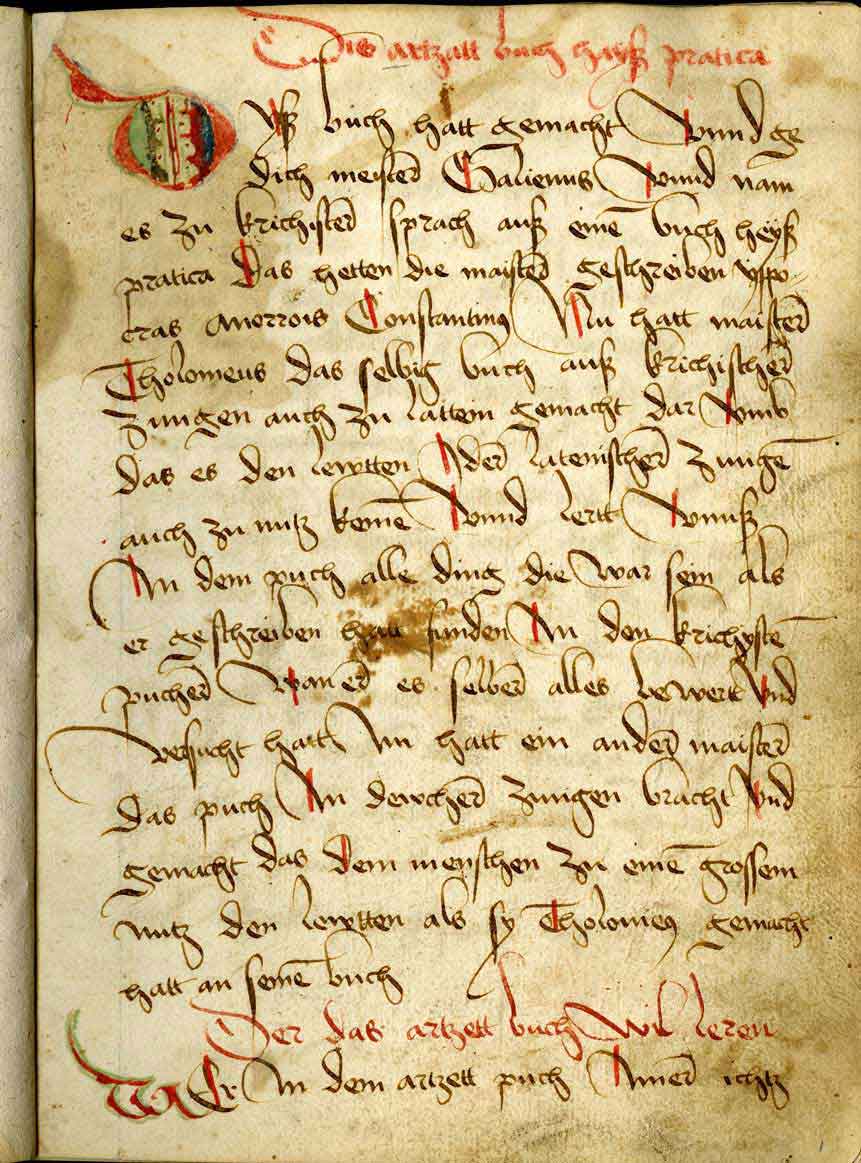 Dis artzatt buch hayß pratica
Dyß buch hatt gemacht Vnnd ge
dich meisterˉ Galienus Vnnd nam
es zu krichisterˉ sprach auß eineˉ buch heyß
pratica Das hetten die maisterˉ geschreiben yppo-
cras Auerrois Constantinꝰ Nu hatt maisterˉ
Tholomeus das selbig buch auß krichischerˉ
Zungen auch zu lattein gemacht dar Vmb
das es den lewtten Jderˉ latenischerˉ zungeˉ
auch zu nutz kemeˉ Vnnd lertt Vnnß
In dem puch alle ding die war sein als
er geschreiben hatt funden In den krichysteˉ
pucherˉ Wanerˉ es selberˉ alles bewertt Vnd
versucht hatt Nu hatt ein anderˉ maisterˉ
das puch In dewcherˉ zungen bracht Vnd
gemacht das dem menschen zu eineˉ grossem
nutz den lewtten als sy Tholomeꝰ gemacht
hatt an seineˉ buch
Der das artzett buch Wil leren
WEr In dem artzett puch Jmerˉ ichtz